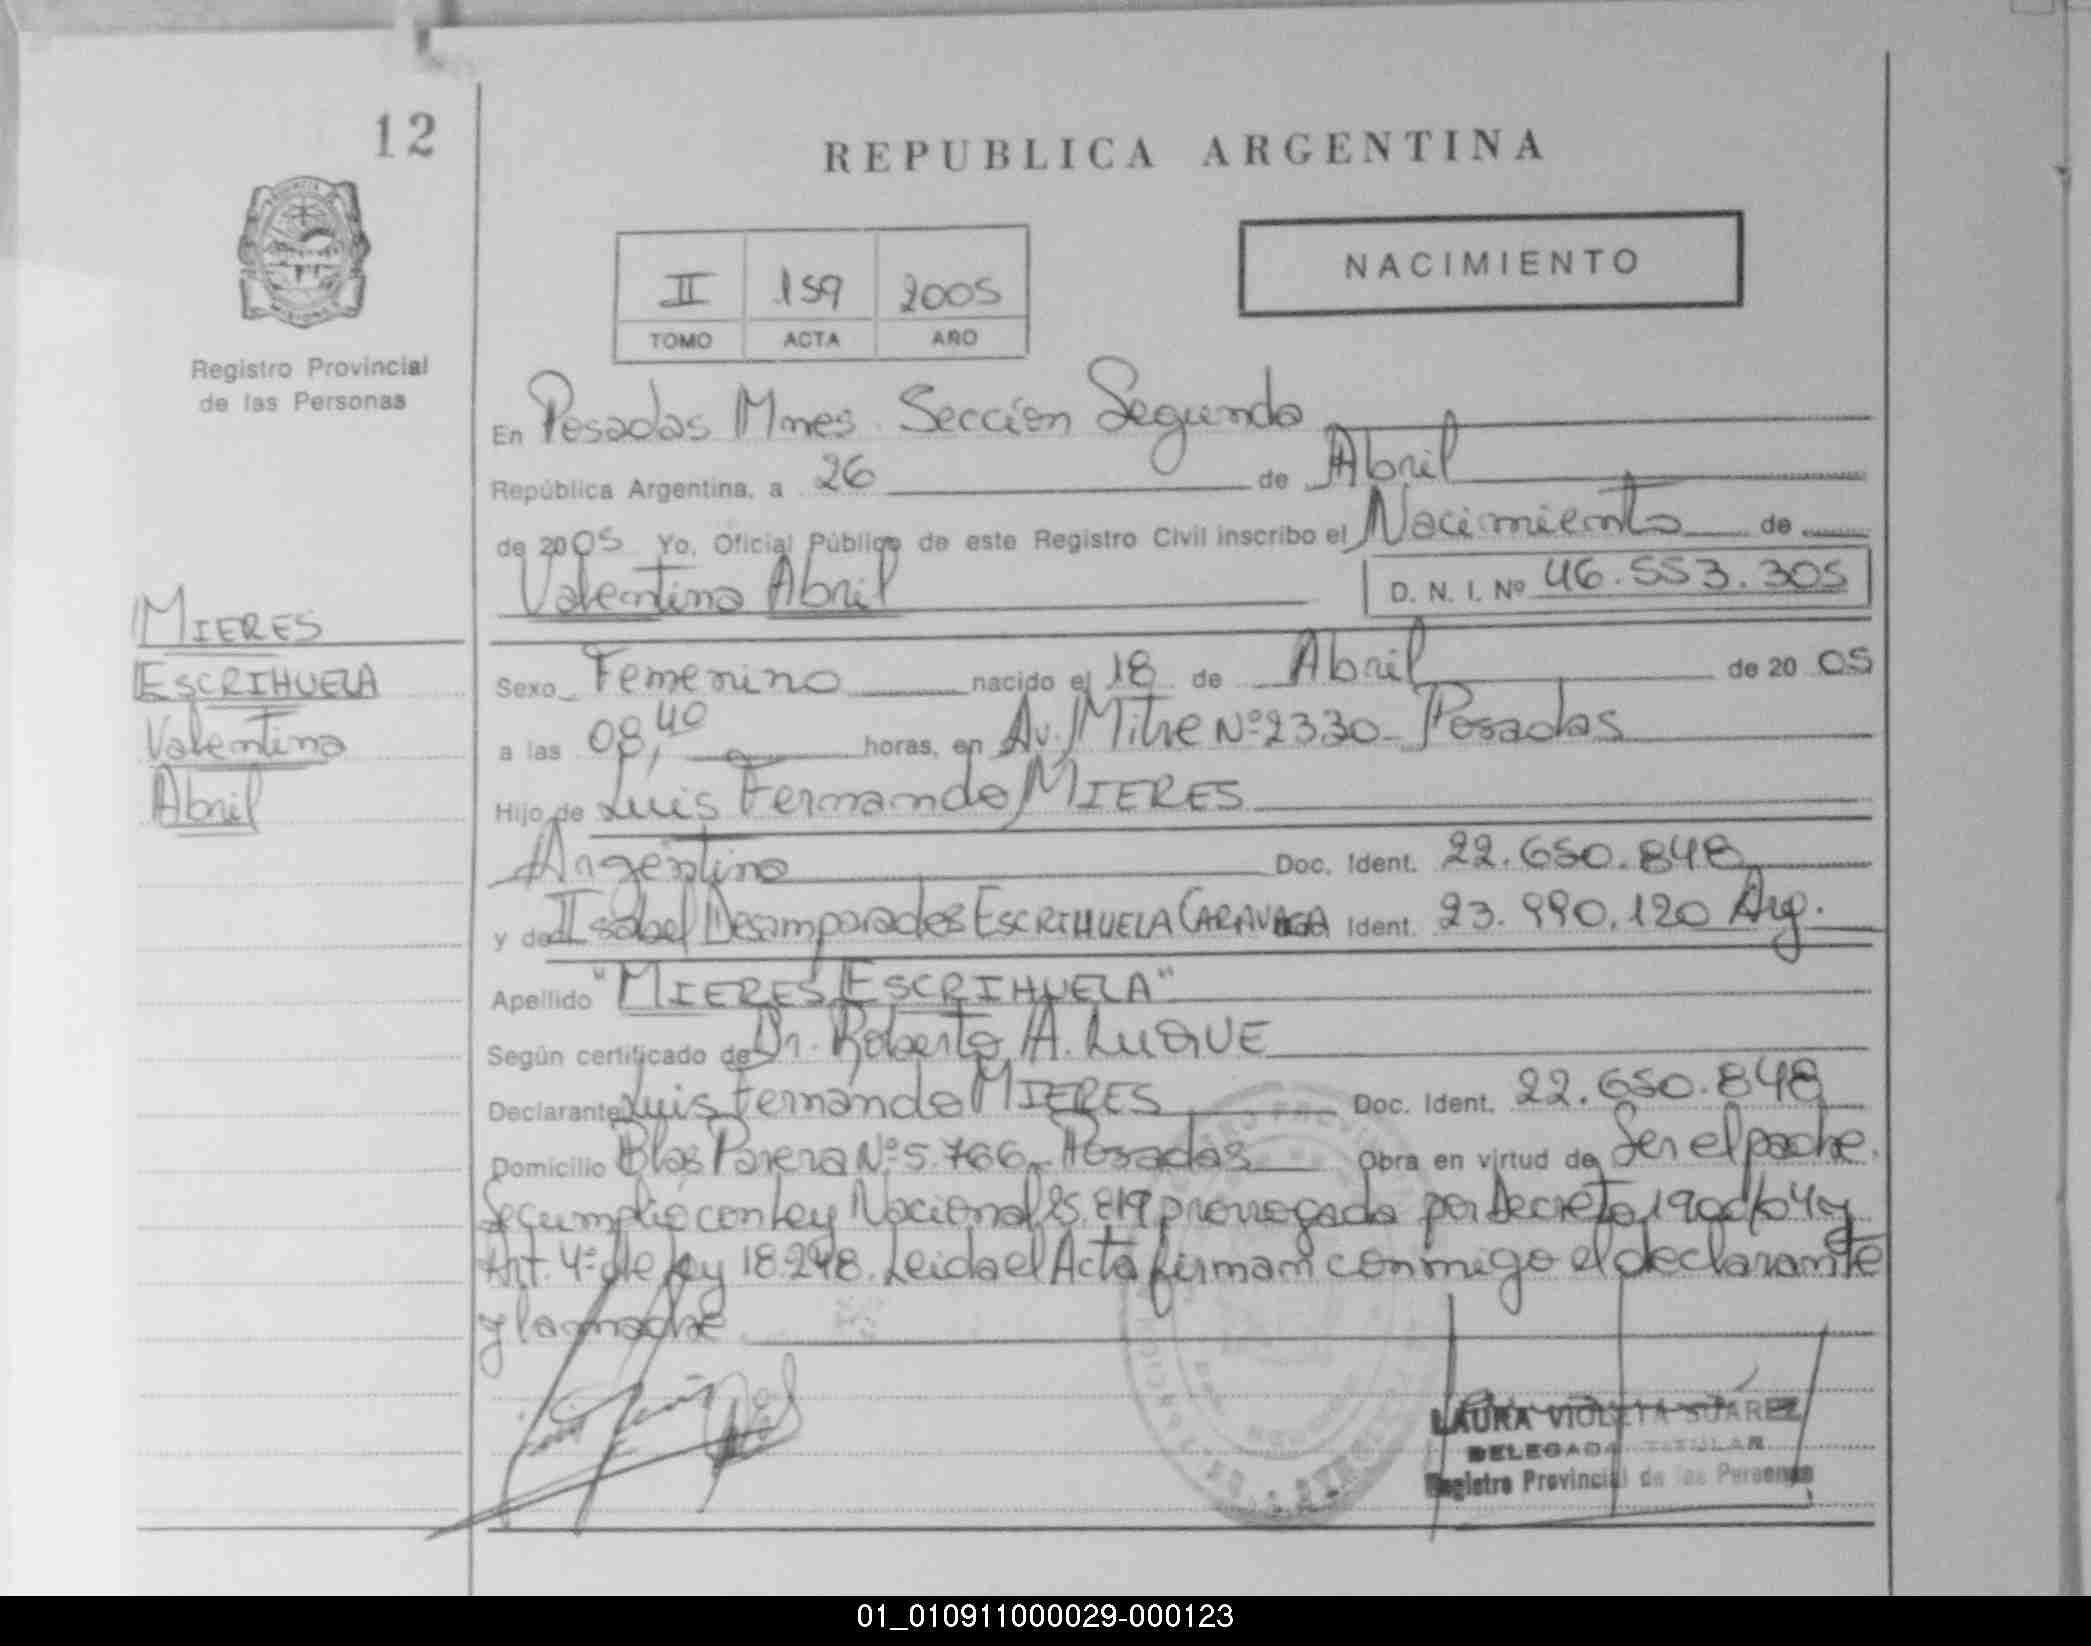 12
REPUBLICA ARGENTINA
II 159 2005
TOMO ACTA AÑO
NACIMIENTO
Registro Provincial
de las Personas
En Posadas Mnes. Sección Segunda
República Argentina, a 26 de Abril
de 2005 Yo, Oficial Público de este Registro Civil inscribo el Nacimiento de
Valentina Abril D. N. I. Nº 46.553.305
MIERES
ESCRIHUELA
Valentina
Abril
Sexo Femenino nacido el 18 de Abril de 20 05
a las 08,40 horas, en Av. Mitre Nº 2330 - Posadas
Hijo de Luis Fernando MIERES
Argentino Doc. Ident. 22.650.848
y de Isabel Desamparados ESCRIHUELA CARAVACA Ident. 23.990.120 Arg.
Apellido "MIERES ESCRIHUELA"
Según certificado de Dr. Roberto A. LUQUE
Declarante Luis Fernando MIERES Doc. Ident. 22.650.848
Domicilio Blas Parera Nº 5.766 - Posadas Obra en virtud de Ser el padre.
Se cumplió con Ley Nacional 25.819 prorrogada por Decreto 190 /04 y
Art. 4º de Ley 18.248. Leida el Acta firman conmigo el declarante
y la madre
LAURA VIOLETA SUÁREZ
DELEGADA TITULAR
Registro Provincial de las Personas
01_010911000029-000123